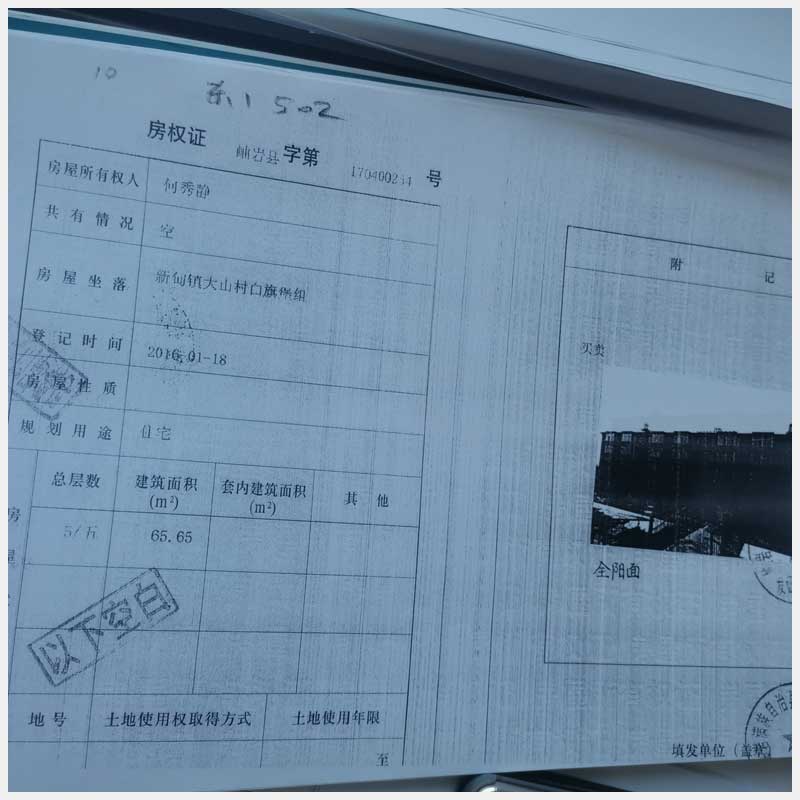 10
东1 502
房权证 岫岩县 字第 170400234 号
房屋所有权人 何秀静
共有情况 空
房屋坐落 新甸镇大山村白旗堡组
登记时间 2016-01-18
房屋性质
规划用途 住宅
总层数 建筑面积(m²) 套内建筑面积(m²) 其他
5/五 65.65
以下空白
地号 土地使用权取得方式 土地使用年限
至
附记
买卖
全阳面
填发单位(盖章)